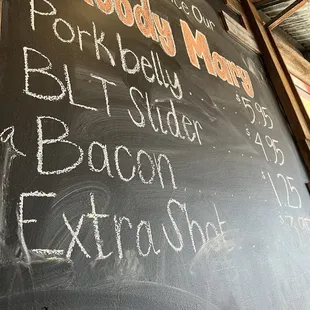 Our
Bloody Mary
Pork belly . . . $5.95
BLT Slider . . . $4.95
Bacon . . . $1.25
Extra Shot